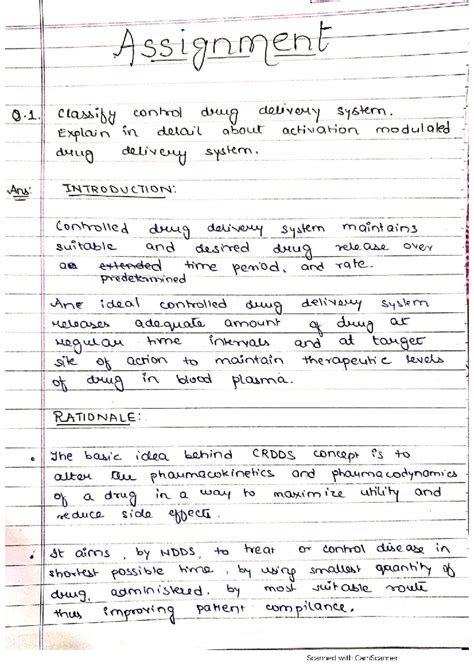 Assignment
Q.1. Classify control drug delivery system.
Explain in detail about activation modulated
drug delivery system.
Ans: INTRODUCTION:
Controlled drug delivery system maintains
suitable and desired drug release over
a extended time period, and rate.
predetermined
An ideal controlled drug delivery system
releases adequate amount of drug at
regular time intervals and at target
site of action to maintain therapeutic levels
of drug in blood plasma.
RATIONALE:
• The basic idea behind CRDDS concept is to
alter the pharmacokinetics and pharmacodynamics
of a drug in a way to maximize utility and
reduce side effects.
• It aims, by NDDS, to treat or control disease in
shortest possible time, by using smallest quantity of
drug, administered, by most suitable route
thus improving patient compilance.
Scanned with CamScanner